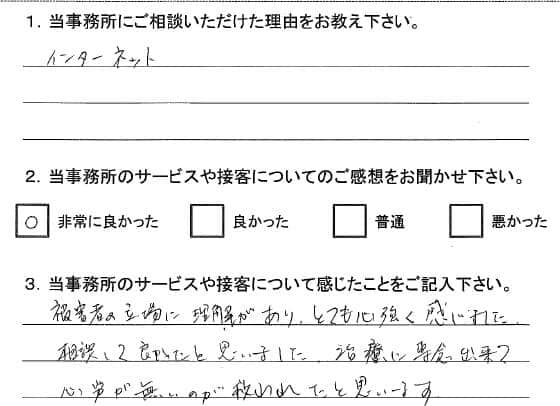 1. 当事務所にご相談いただけた理由をお教え下さい。
インターネット
2. 当事務所のサービスや接客についてのご感想をお聞かせ下さい。
○ 非常に良かった 良かった 普通 悪かった
3. 当事務所のサービスや接客について感じたことをご記入下さい。
被害者の立場に理解があり、とても心強く感じれた。
相談して良かったと思いました。治療に専念出来て
心労が無いのが救われたと思います